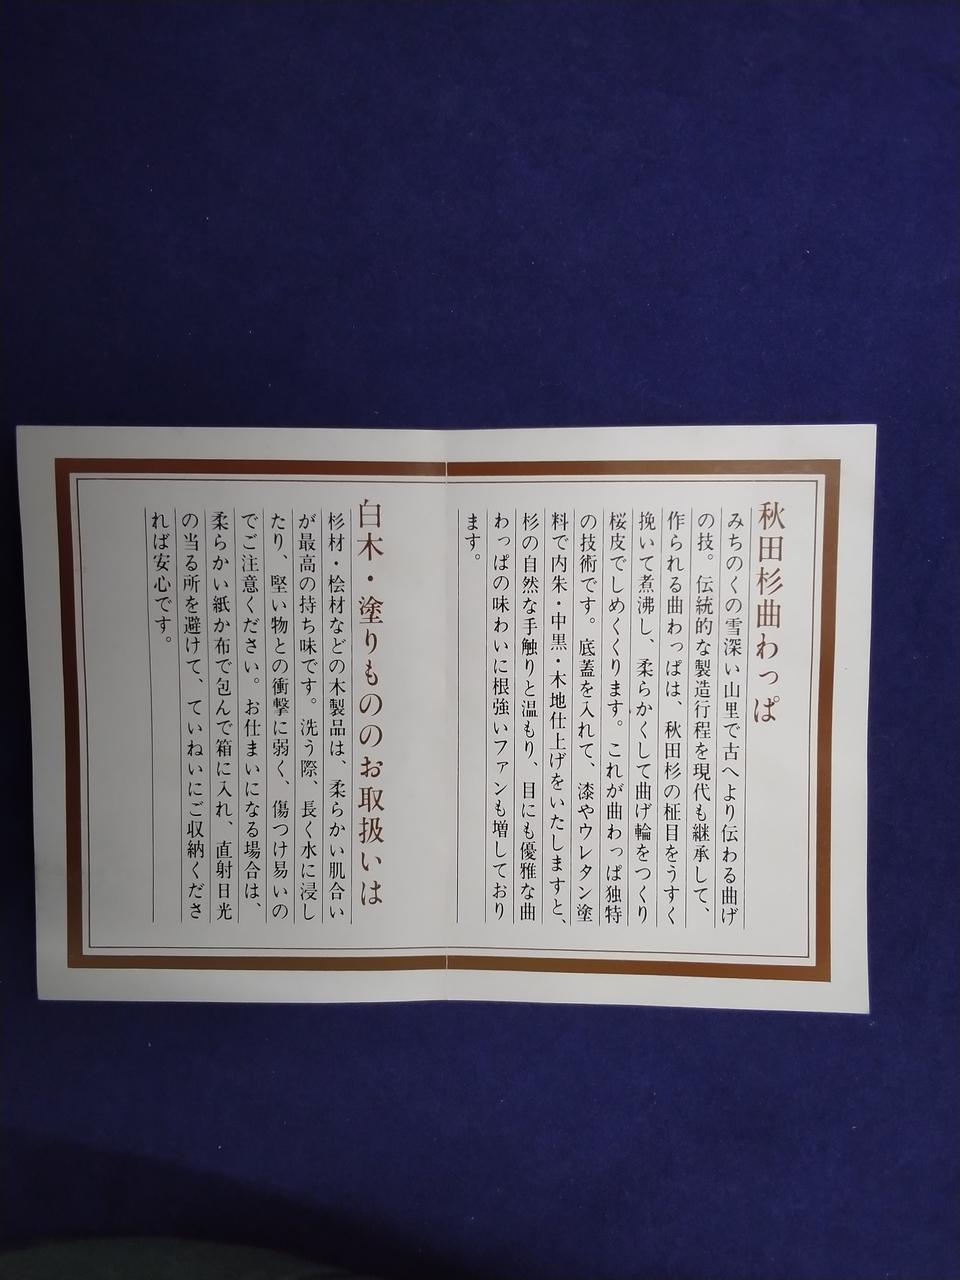 秋田杉曲わっぱ
みちのくの雪深い山里で古へより伝わる曲げ
の技。伝統的な製造行程を現代も継承して、
作られる曲わっぱは、秋田杉の柾目をうすく
挽いて煮沸し、柔らかくして曲げ輪をつくり
桜皮でしめくくります。これが曲わっぱ独特
の技術です。底蓋を入れて、漆やウレタン塗
料で内朱・中黒・木地仕上げをいたしますと、
杉の自然な手触りと温もり、目にも優雅な曲
わっぱの味わいに根強いファンも増しており
ます。
白木・塗りもののお取扱いは
杉材・桧材などの木製品は、柔らかい肌合い
が最高の持ち味です。洗う際、長く水に浸し
たり、堅い物との衝撃に弱く、傷つけ易いの
でご注意ください。お仕まいになる場合は、
柔らかい紙か布で包んで箱に入れ、直射日光
の当る所を避けて、ていねいにご収納くださ
れば安心です。